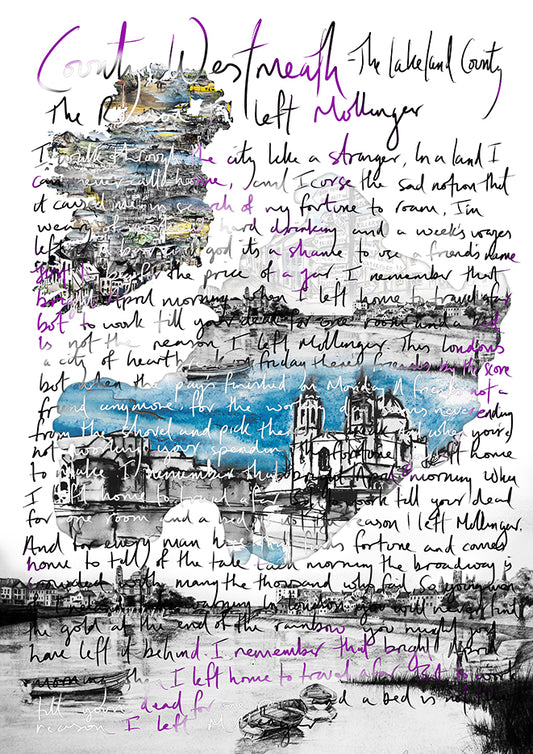 County Westmeath - The Lakeland County
The Reason I left Mullingar
I walk through the city like a stranger, In a land I
can never call home, and I curse the sad notion that
it caused me in search of my fortune to roam, I'm
weary of hard drinking and a week's wages
left god it's a shame to use a friend's name
Just to beg for the price of a jar I remember that
bright April morning when I left home to travel afar
but to work till your dead for one room and a bed
Is not the reason I left Mullingar. This London's
a city of heartbreak on friday there's friends by the score
but when the pays finished on Monday A friends not a
friend anymore. for the working day seems never ending
from the shovel and pick the and when you're
not working your spending fortune left home
to make I remember that bright April morning when
I left home to travel afar to work till your dead
for one room and a bed is not the reason I left Mullingar.
And for every man his fortune and comes
home to tell of the tale each morning the broadway is
crowded with many the thousand who fail So young men
in London you will never find
the gold at the end of the rainbow you might just
have left it behind. I remember that bright April
morning when I left home to travel afar but to work
till your dead for and a bed is not
reason I left